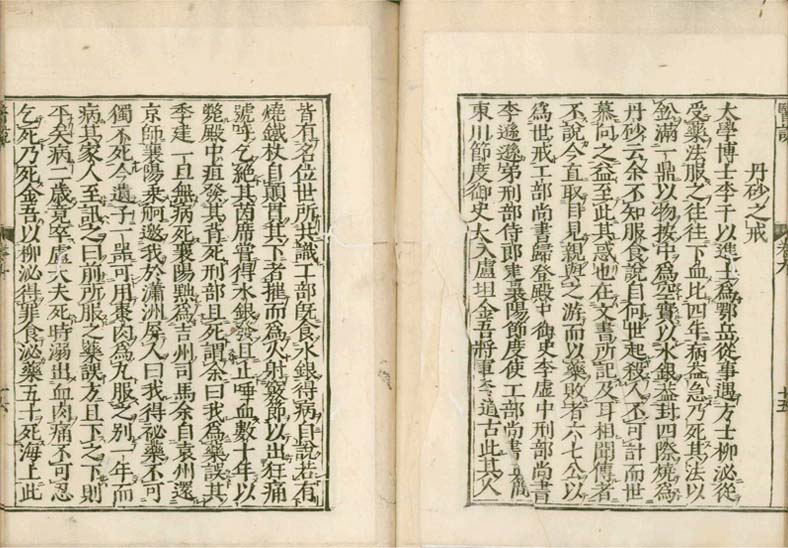 丹砂之戒
太學博士李干以進士為鄂岳從事遇方士柳泌從
受藥法服之往往下血比四年病益急乃死其法以
鈆滿一鼎以物按中為空實以水銀蓋封四際燒為
丹砂云余不知服食說自何世起殺人不可計而世
慕向之益至此其惑也在文書所記及耳相聞傳者
不說今直取目見親與之游而以藥敗者六七公以
為世戒工部尚書歸登殿中御史李虛中刑部尚書
李遜遜弟刑部侍郎建襄陽節度使工部尚書
東川節度御史大人盧坦金吾將軍李道古此其人
皆有名位世所共識工部旣食水銀得病自說若有
燒鐵杖自顛貫其下者摧而為火射竅節以出狂痛
號呼乞絕其茵席嘗得水銀發且止唾血數十年以
斃殿中疽發其背死刑部且死謂余曰我為藥誤其
季建一旦無病死襄陽黜為吉州司馬余自袁州還
京師襄陽乗舸邀我於瀟洲屏人曰我得祕藥不可
獨不死今遺子一器可用棗肉為丸服之别一年而
病其家人至訊之曰前所服之藥誤方且下之下則
平矣病二歲竟卒盧大夫死時溺出血肉痛不可忍
乞死乃死金吾以柳泌得罪食泌藥五十死海上此
醫說
卷九
十五